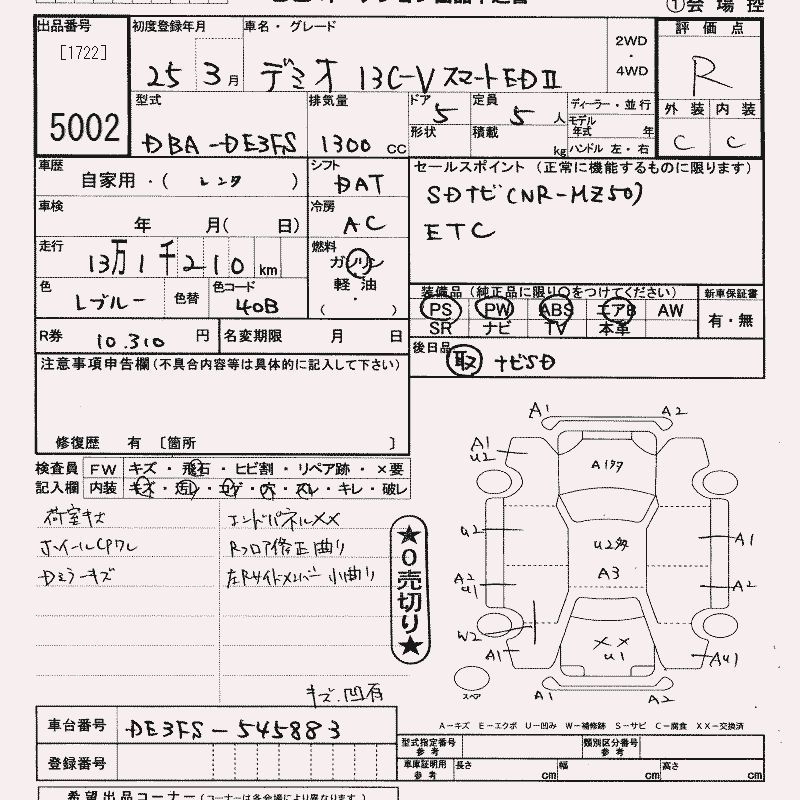 ①会場控
出品番号
[1722]
5002
初度登録年月
25 3月
車名・グレード
デミオ 13C-V スマートEDⅡ
2WD
・
4WD
評価点
R
外装 内装
C C
型式
DBA-DE3FS
排気量
1300 CC
ドア 5
定員 5人
形状
積載 kg
ディーラー・並行
モデル年式 年
ハンドル 左・右
車歴
自家用・( レンタ )
シフト
DAT
セールスポイント(正常に機能するものに限ります)
SDナビ(NR-MZ50)
ETC
車検
年 月( 日)
冷房
AC
走行
13万1千210km
燃料
ガソリン
軽油
( ・ )
色
Lブルー
色替
色コード
40B
装備品(純正品に限り○をつけてください)
PS PW ABS エアB AW
SR ナビ TV 本革
新車保証書
有・無
R券 10.310円
名変期限 月 日
後日品
取 ナビSD
注意事項申告欄(不具合内容等は具体的に記入して下さい)
修復歴 有 〔箇所 〕
検査員記入欄
FW キズ・飛石・ヒビ割・リペア跡・×要
内装 キズ・汚レ・コゲ・穴・スレ・キレ・破レ
荷室キズ
ホイールCPワレ
Dミラーキズ
エンドパネルXX
Rフロア修正曲り
左Rサイドメンバー小曲り
キズ.凹有
★0売切り★
A1 A2
A1
U2
A1ワク
U2
U2多
A1
A3
A2
U1
A2
W2
XX
U1
A1
AU1
スペア
A1 A2
A-キズ E-エクボ U-凹み W-補修跡 S-サビ C-腐食 XX-交換済
車台番号 DE3FS-545883
登録番号
型式指定番号
参考
類別区分番号
参考
車庫証明用
参考
長さ cm
幅 cm
高さ cm
希望出品コーナー(コーナーは各会場により異なります。)